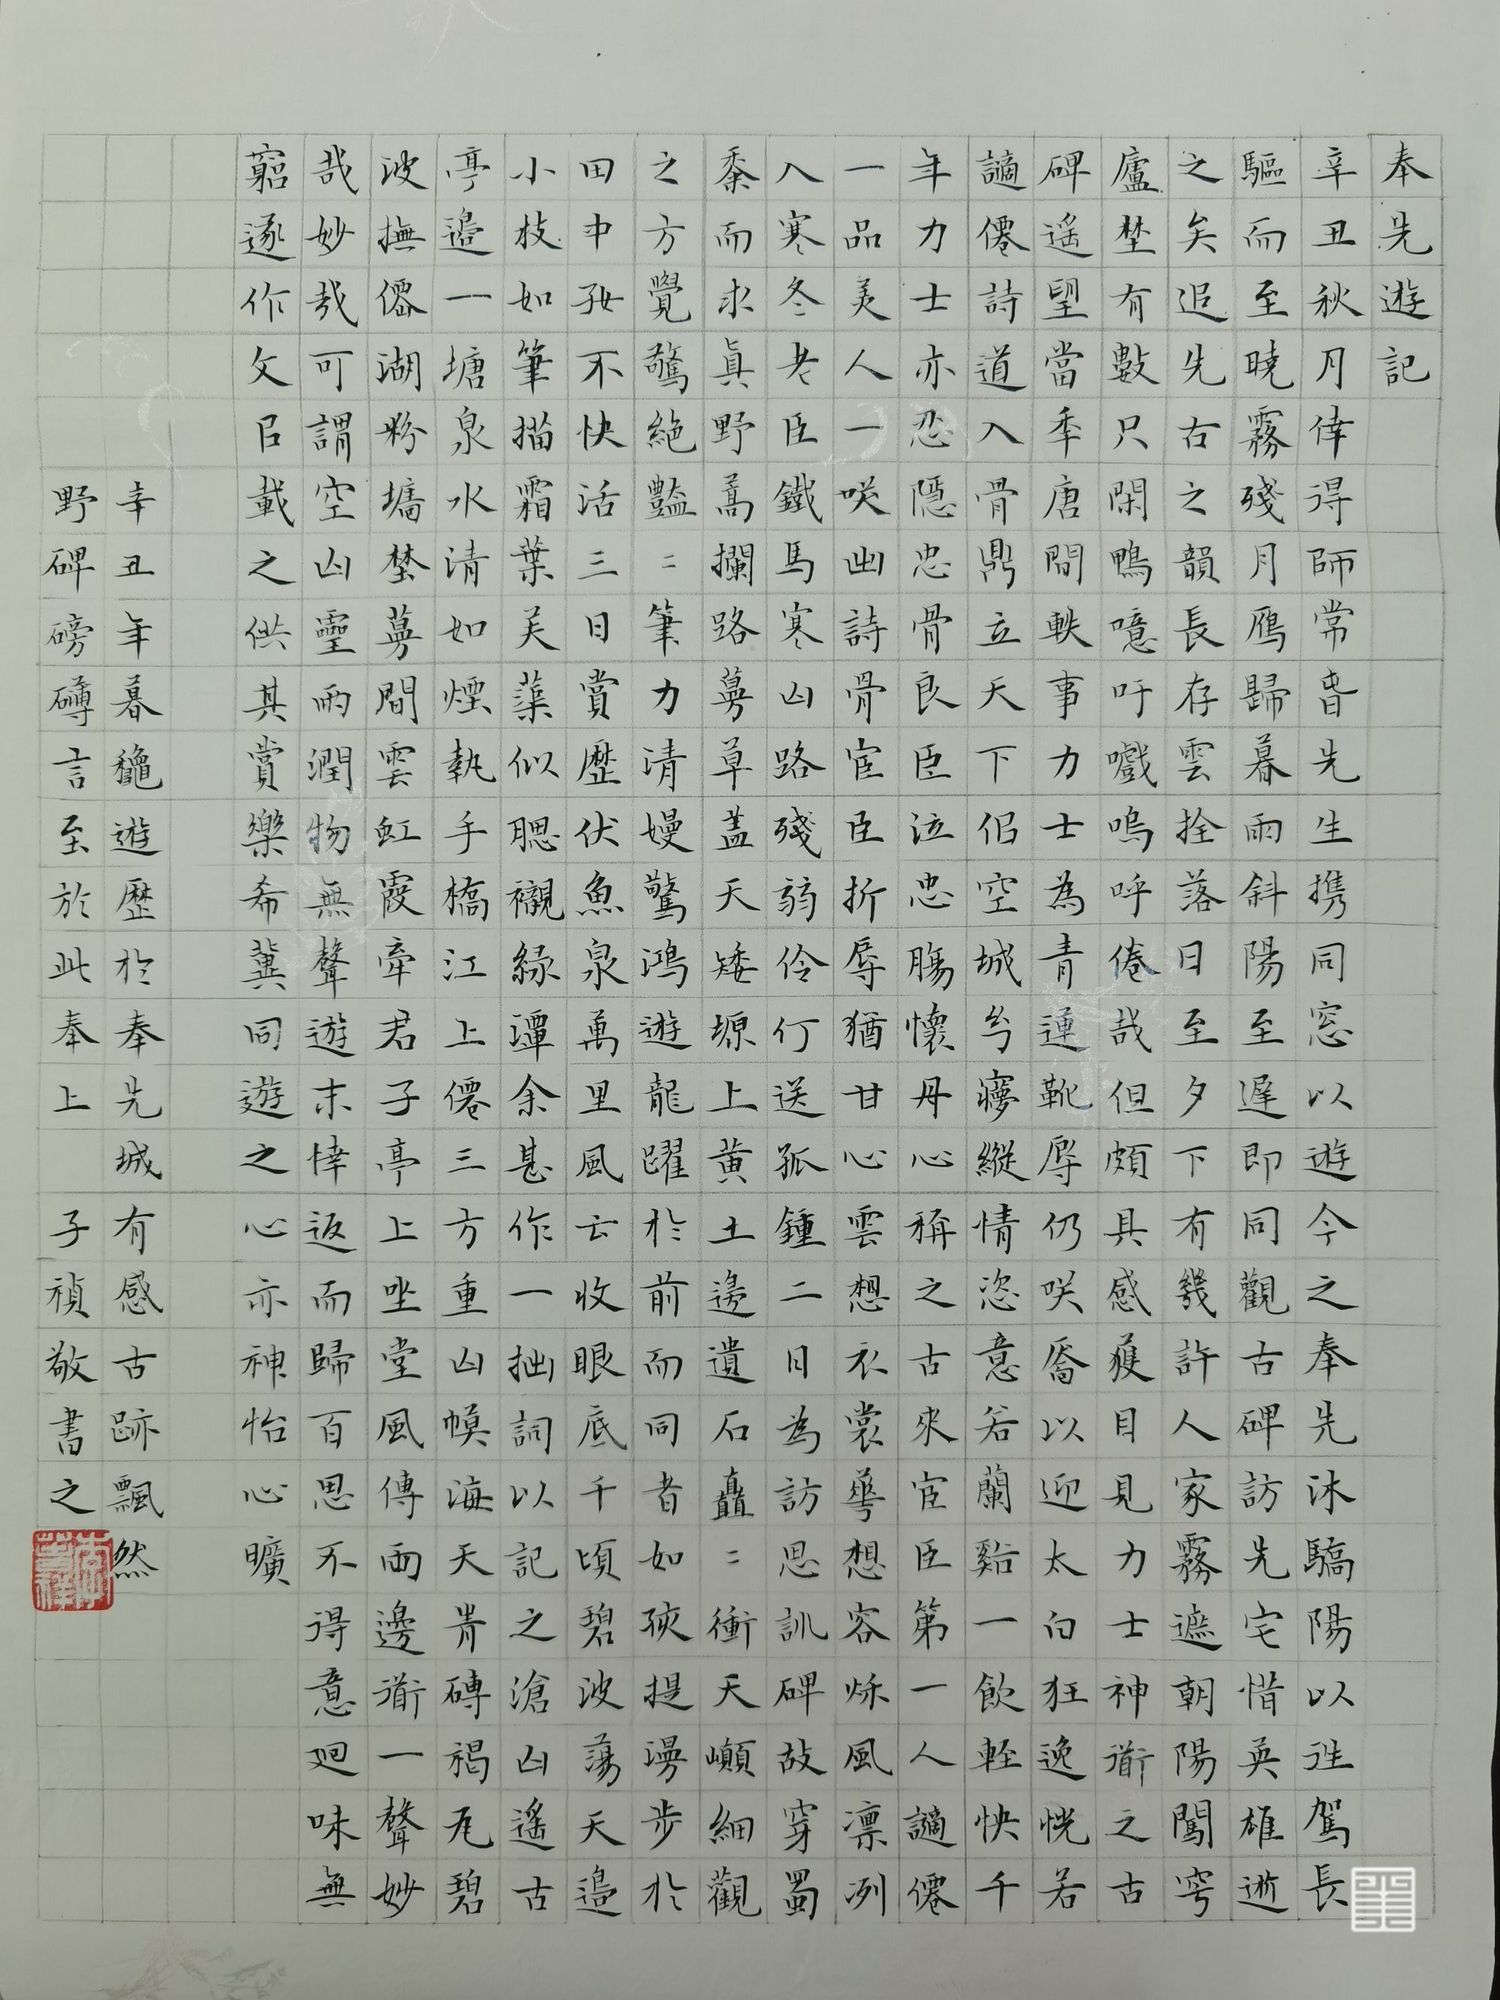 奉先遊記
辛丑秋月倖得師常昏先生携同窓以遊今之奉先沐驕陽以迬駕長
驅而至曉霧殘月鴈歸暮雨斜陽至遅即同觀古碑訪先宅惜英雄逝
之矣追先古之韻長存雲拴落日至夕下有幾許人家霧遮朝陽闖窂
廬埜有數只閑鴨噫吁嚱嗚呼倦哉但頗具感獲目見力士神衜之古
碑遥望當季唐間軼事力士為青蓮靴辱仍咲喬以迎太白狂逸恍若
謫僊詩道入骨鼎立天下侶空城兮夢縱情恣意若蘭谿一飲輕快千
年力士亦忍隱忠骨良臣泣忠膓懷丹心稱之古來宦臣第一人謫僊
一品美人一咲幽詩骨宦臣折辱猶甘心雲想衣裳華想容烁風凛冽
入寒冬老臣鐵馬寒山路殘弱伶仃送孤鍾二日為訪思訓碑故穿蜀
黍而求真野蒿攔路蒡草蓋天矮塬上黄土邊遺石矗二衝天巔細觀
之方覺驚絶豔二筆力清嫚驚鴻遊龍躍於前而同者如莰提漫步於
田中孜不快活三日賞歷伏魚泉萬里風云收眼底千頃碧波蕩天邉
小枝如筆描霜葉芙蕖似聰襯緑潭余甚作一拙詞以記之滄山遥古
亭邉一塘泉水清如煙執手橋江上僊三方重山幙海天青磚褐瓦碧
波撫僊湖粉墻埜蒡間雲虹霞牽君子亭上坐堂風傳雨邊衜一聲妙
哉妙哉可謂空山靈雨潤物無聲遊末悻返而歸百思不得意廻味無
窮遂作文㠯載之供其賞樂希冀同遊之心亦神怡心曠
辛丑年暮龝遊歷於奉先城有感古跡飄然
野碑磅礴言至於此奉上子禎敬書之